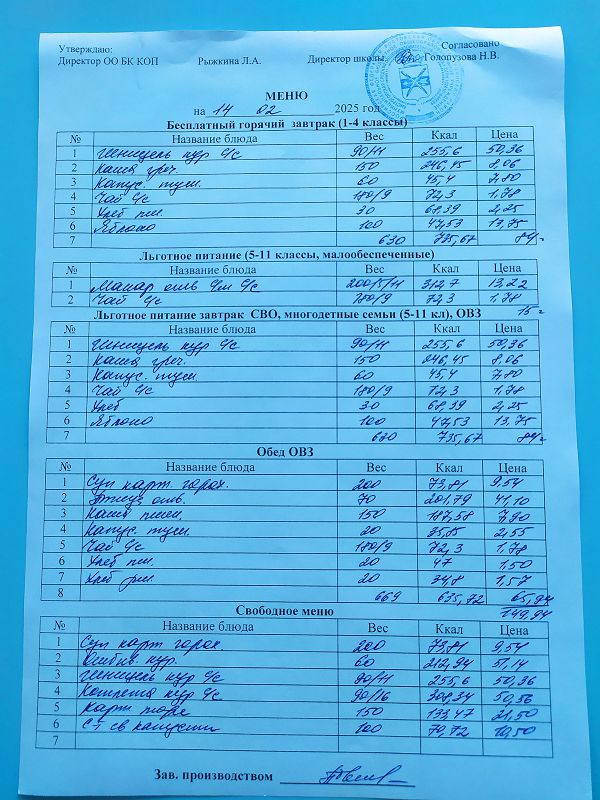 Утверждаю: Согласовано
Директор ОО БК КОП Рыжкина Л.А. Директор школы Голопузова Н.В.
МЕНЮ
на 14 02 2025 год
Бесплатный горячий завтрак (1-4 классы)
№ Название блюда Вес Ккал Цена
1 Шницель кур с/с 90/11 255,6 50,36
2 Каша греч. 150 246,45 8,06
3 Капус. туш. 60 45,4 7,80
4 Чай с/с 180/9 72,3 1,78
5 Хлеб пш. 30 68,39 2,25
6 Яблоко 100 47,53 13,75
7 630 735,67 84-
Льготное питание (5-11 классы, малообеспеченные)
№ Название блюда Вес Ккал Цена
1 Макар отв с/с 200/5/11 312,7 13,22
2 Чай с/с 180/9 72,3 1,78
15
Льготное питание завтрак СВО, многодетные семьи (5-11 кл), ОВЗ
№ Название блюда Вес Ккал Цена
1 Шницель кур с/с 90/11 255,6 50,36
2 Каша греч. 150 246,45 8,06
3 Капус. туш. 60 45,4 7,80
4 Чай с/с 180/9 72,3 1,78
5 Хлеб 30 68,39 2,25
6 Яблоко 100 47,53 13,75
7 630 735,67 84-
Обед ОВЗ
№ Название блюда Вес Ккал Цена
1 Суп карт. горох. 200 73,81 9,54
2 отв. 70 201,79 41,10
3 Каша пшен. 150 187,58 7,90
4 Капус. туш. 20 35,85 2,55
5 Чай с/с 180/9 72,3 1,78
6 Хлеб пш. 20 47 1,50
7 Хлеб рж. 20 34,8 1,57
8 669 635,72 65,94
149,94
Свободное меню
№ Название блюда Вес Ккал Цена
1 Суп карт горох. 200 73,81 9,54
2 Отбив. кур. 60 212,94 51,14
3 Шницель кур с/с 90/11 255,6 50,36
4 Котлета кур с/с 90/16 308,34 50,56
5 Карт пюре 150 133,47 21,50
6 Ст св капусты 100 79,72 10,50
7
Зав. производством